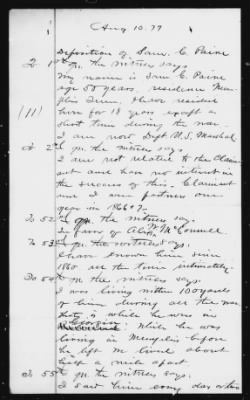 Aug 10. 77
Deposition of Sam. C. Paine
To 1st qu. the witness says
My name is Sam C. Paine
age 50 years, residence Mem
phis Tenn. I have resided
(11) here for 18 years except a
short time during the war.
I am now Dept. U.S. Marshal.
2nd qu. the witness says
I am not related to the Claim
ant and have no interest in
the success of this. Claimant
and I were partners one
year in 1866 & 7.
To 52 qu. the witness says.
In favor of W. McConnell.
To 53 qu. the witness says.
I have known him since
1860 all the time intimately.
To 54 qu the witness says.
I was living within 100 yards
of him during all the war
that is while he was in
Georgia. While he was
living in Memphis before
he left we lived about
half a mile apart
To 55 qu. the witness says.
I saw him every day when